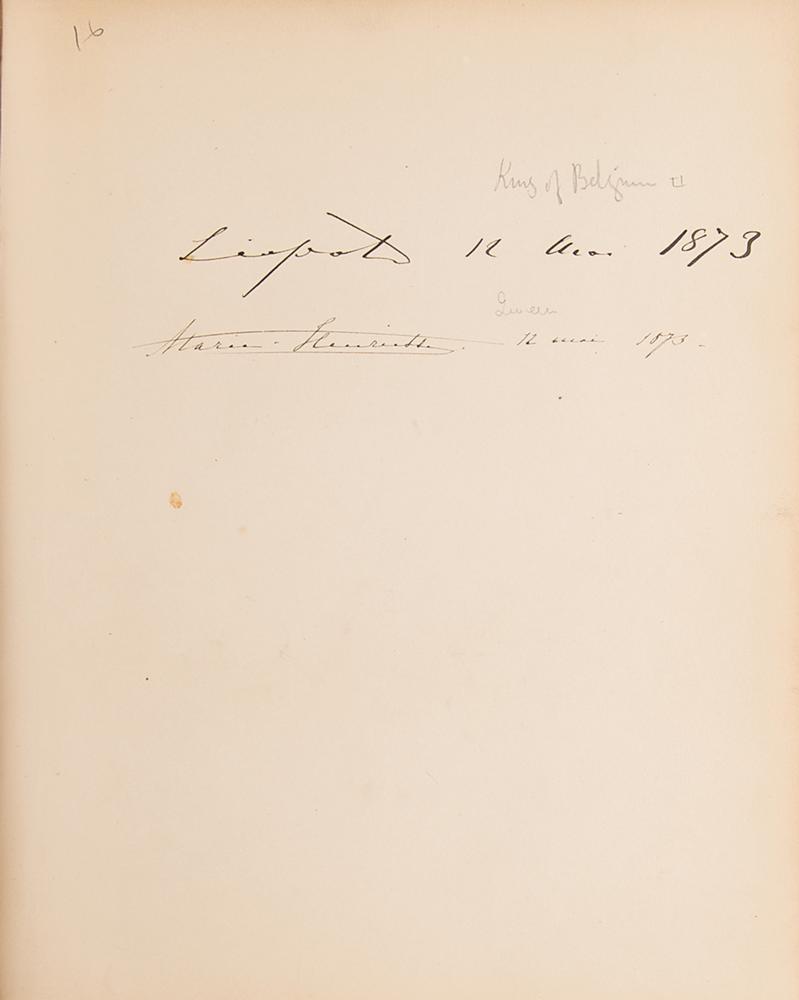 16
King of Belgium II
Leopold 12 Mai 1873
Queen
Marie-Henriette. 12 mai 1873-